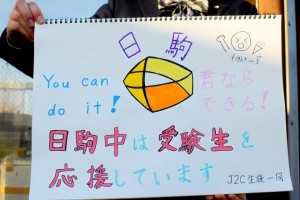 日 駒
fight—!!
You can
do it!
君なら
できる!
日駒中は受験生を
応援しています
J2C生徒一同